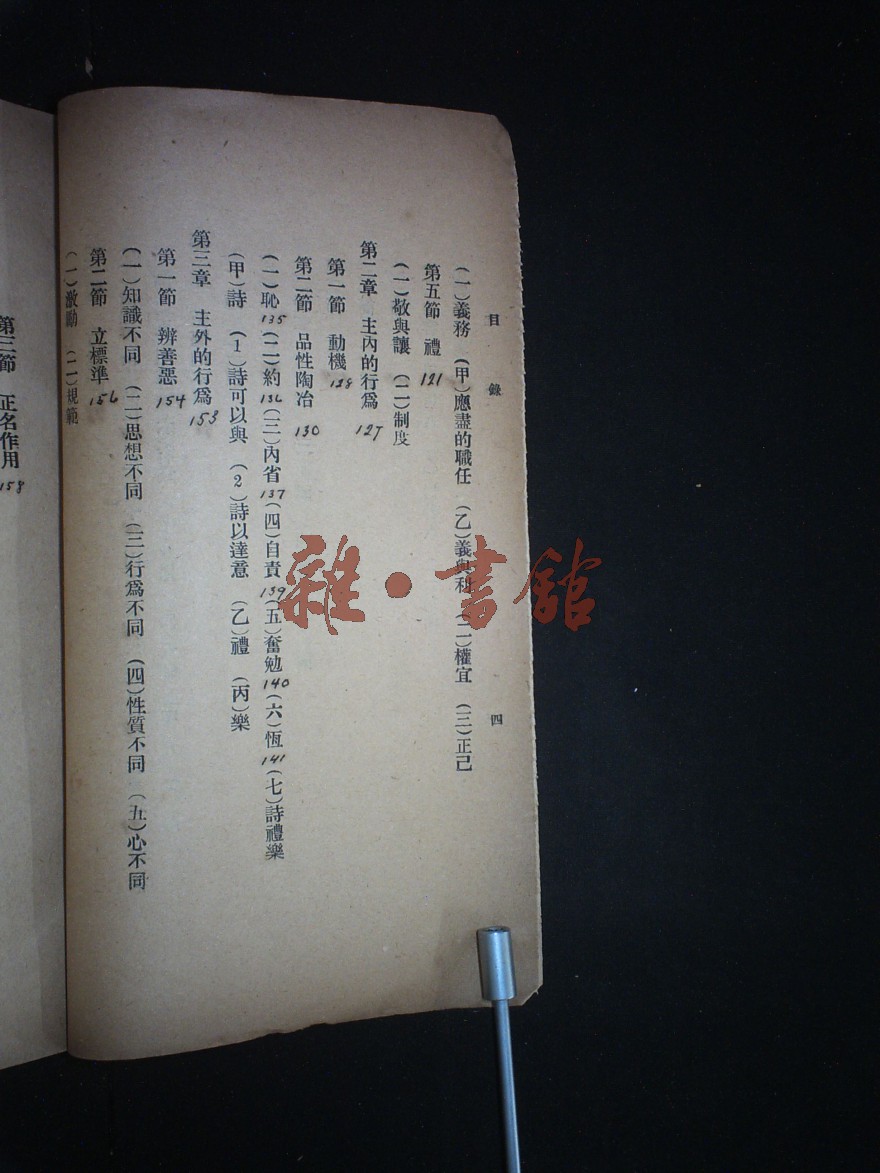 目錄 四
(一)義務 (甲)應盡的職任 (乙)義與利 (二)權宜 (三)正己
第五節 禮 121
(一)敬與讓 (二)制度
第二章 主內的行爲 127
第一節 動機 128
第二節 品性陶冶 130
(一)恥 135 (二)約 136 (三)內省 137 (四)自責 139 (五)奮勉 140 (六)恆 141 (七)詩禮樂
(甲)詩 (1)詩可以興 (2)詩以達意 (乙)禮 (丙)樂
第三章 主外的行爲 153
第一節 辨善惡 154
(一)知識不同 (二)思想不同 (三)行爲不同 (四)性質不同 (五)心不同
第二節 立標準 156
(一)激勵 (二)規範
第三節 正名作用 158
雜·書館